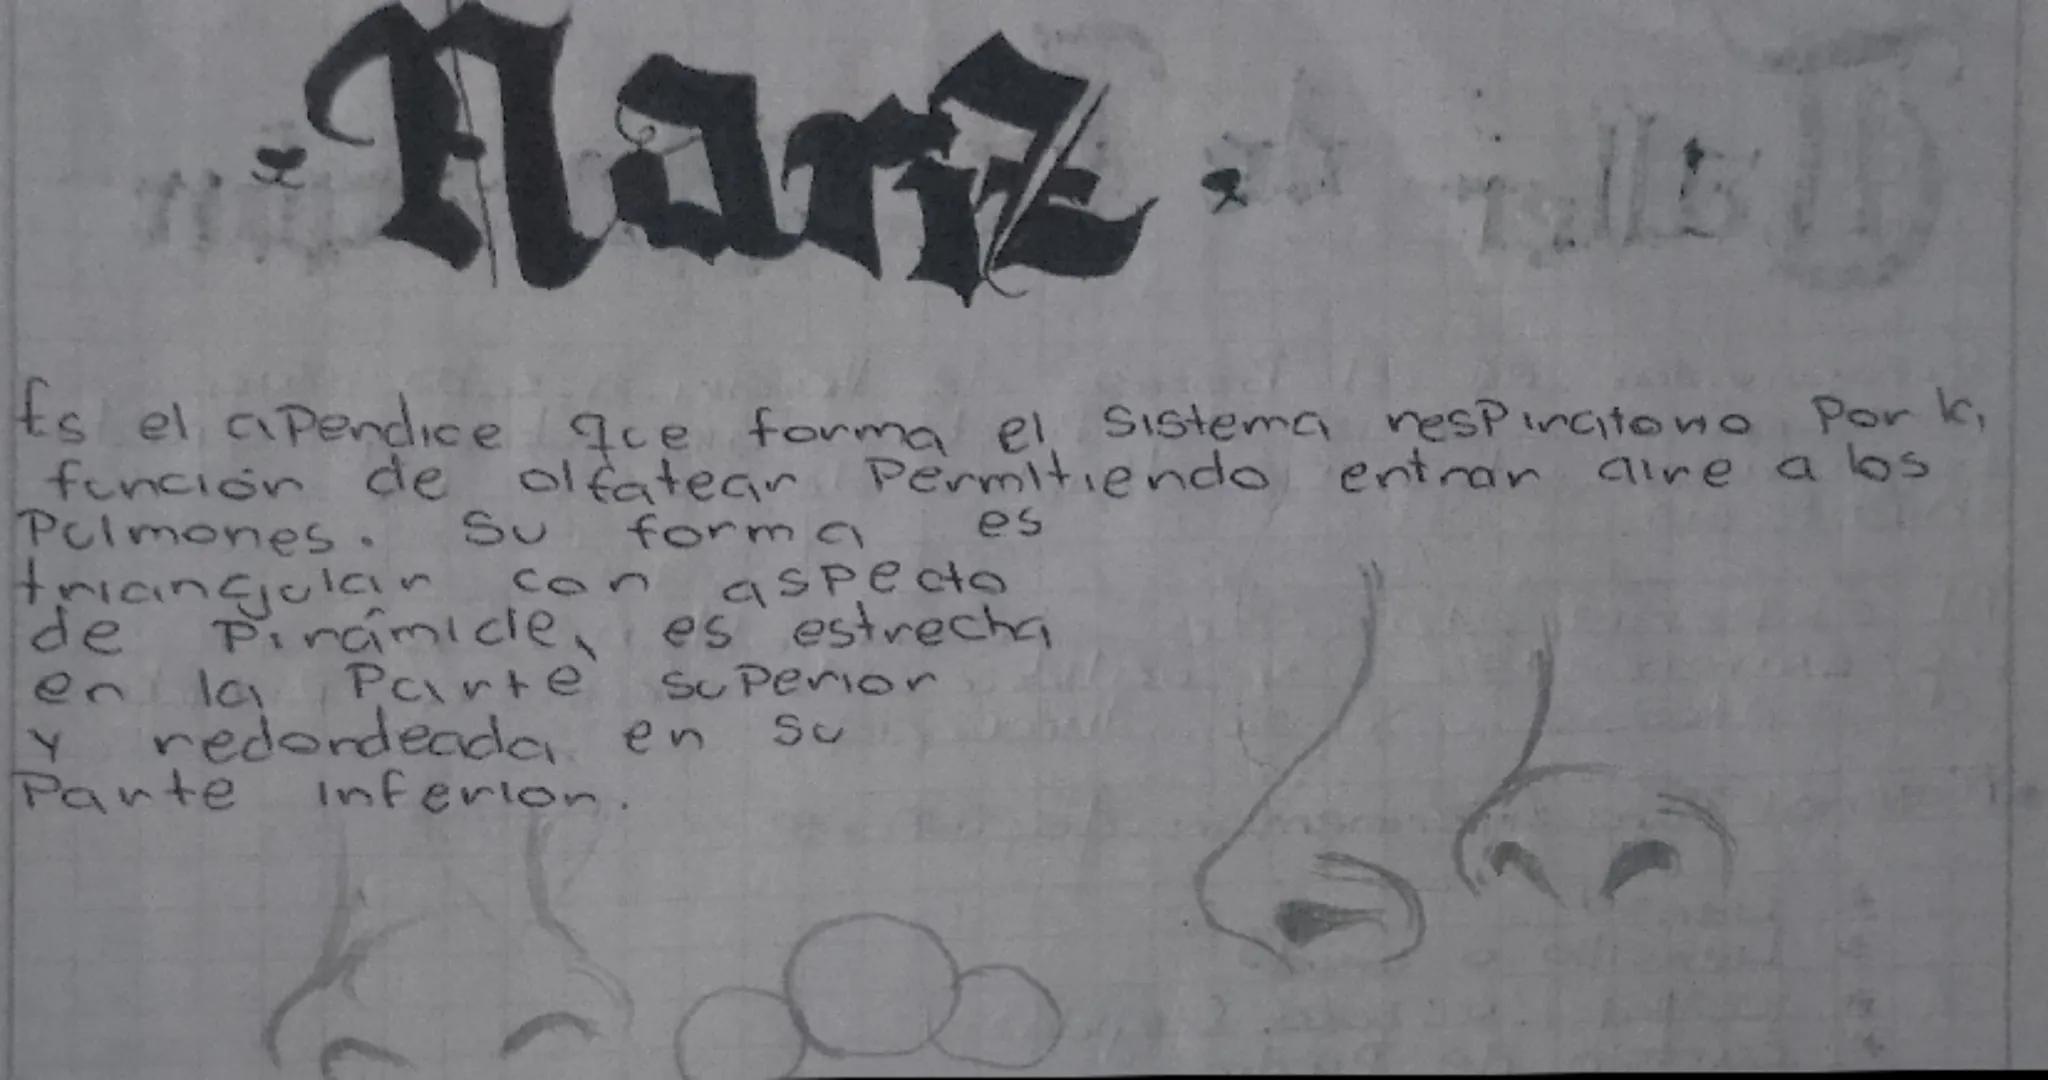 Nariz
Es el apendice que forma el sistema respiratorio por la
función de olfatear Permitiendo entrar aire a los
Pulmones. Su forma es
triangular con aspecto
de Pirámide, es estrecha
en la Parte superior
y redondeada en su
Parte inferior.